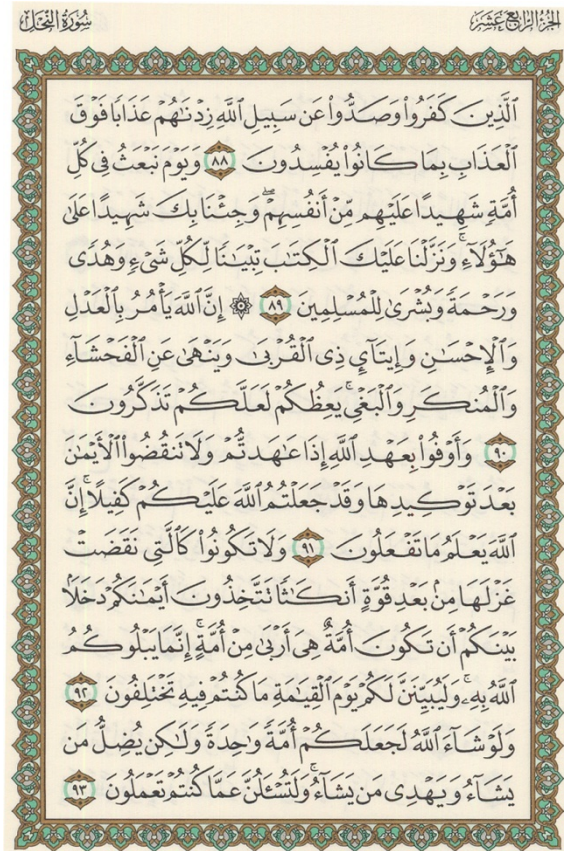 الجزء الرابع عشر
سورة النحل
ٱلَّذِينَ كَفَرُوا۟ وَصَدُّوا۟ عَن سَبِيلِ ٱللَّهِ زِدْنَـٰهُمْ عَذَابًا فَوْقَ
ٱلْعَذَابِ بِمَا كَانُوا۟ يُفْسِدُونَ ٨٨ وَيَوْمَ نَبْعَثُ فِى كُلِّ
أُمَّةٍ شَهِيدًا عَلَيْهِم مِّنْ أَنفُسِهِمْ ۖ وَجِئْنَا بِكَ شَهِيدًا عَلَىٰ
هَـٰٓؤُلَآءِ ۚ وَنَزَّلْنَا عَلَيْكَ ٱلْكِتَـٰبَ تِبْيَـٰنًا لِّكُلِّ شَىْءٍ وَهُدًى
وَرَحْمَةً وَبُشْرَىٰ لِلْمُسْلِمِينَ ٨٩ ۞ إِنَّ ٱللَّهَ يَأْمُرُ بِٱلْعَدْلِ
وَٱلْإِحْسَـٰنِ وَإِيتَآئِ ذِى ٱلْقُرْبَىٰ وَيَنْهَىٰ عَنِ ٱلْفَحْشَآءِ
وَٱلْمُنكَرِ وَٱلْبَغْىِ ۚ يَعِظُكُمْ لَعَلَّكُمْ تَذَكَّرُونَ
٩٠ وَأَوْفُوا۟ بِعَهْدِ ٱللَّهِ إِذَا عَـٰهَدتُّمْ وَلَا تَنقُضُوا۟ ٱلْأَيْمَـٰنَ
بَعْدَ تَوْكِيدِهَا وَقَدْ جَعَلْتُمُ ٱللَّهَ عَلَيْكُمْ كَفِيلًا ۚ إِنَّ
ٱللَّهَ يَعْلَمُ مَا تَفْعَلُونَ ٩١ وَلَا تَكُونُوا۟ كَٱلَّتِى نَقَضَتْ
غَزْلَهَا مِنۢ بَعْدِ قُوَّةٍ أَنكَـٰثًا تَتَّخِذُونَ أَيْمَـٰنَكُمْ دَخَلًۢا
بَيْنَكُمْ أَن تَكُونَ أُمَّةٌ هِىَ أَرْبَىٰ مِنْ أُمَّةٍ ۚ إِنَّمَا يَبْلُوكُمُ
ٱللَّهُ بِهِۦ ۚ وَلَيُبَيِّنَنَّ لَكُمْ يَوْمَ ٱلْقِيَـٰمَةِ مَا كُنتُمْ فِيهِ تَخْتَلِفُونَ ٩٢
وَلَوْ شَآءَ ٱللَّهُ لَجَعَلَكُمْ أُمَّةً وَٰحِدَةً وَلَـٰكِن يُضِلُّ مَن
يَشَآءُ وَيَهْدِى مَن يَشَآءُ ۚ وَلَتُسْـَٔلُنَّ عَمَّا كُنتُمْ تَعْمَلُونَ ٩٣